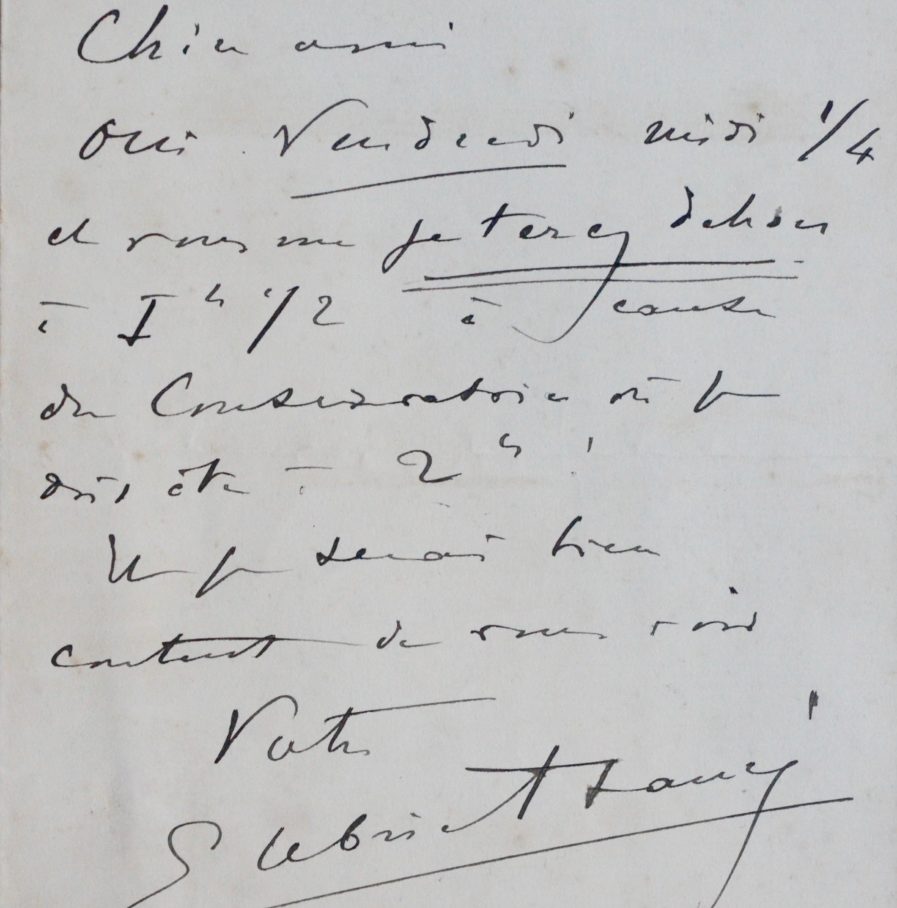 Cher ami
Oui Vendredi midi 1/4
et vous me jeterez dehors
à 1h 1/2 à cause
du Conservatoire où je
dois être à 2h !
Et je serai bien
content de vous voir
Votre
Gabriel Fauré